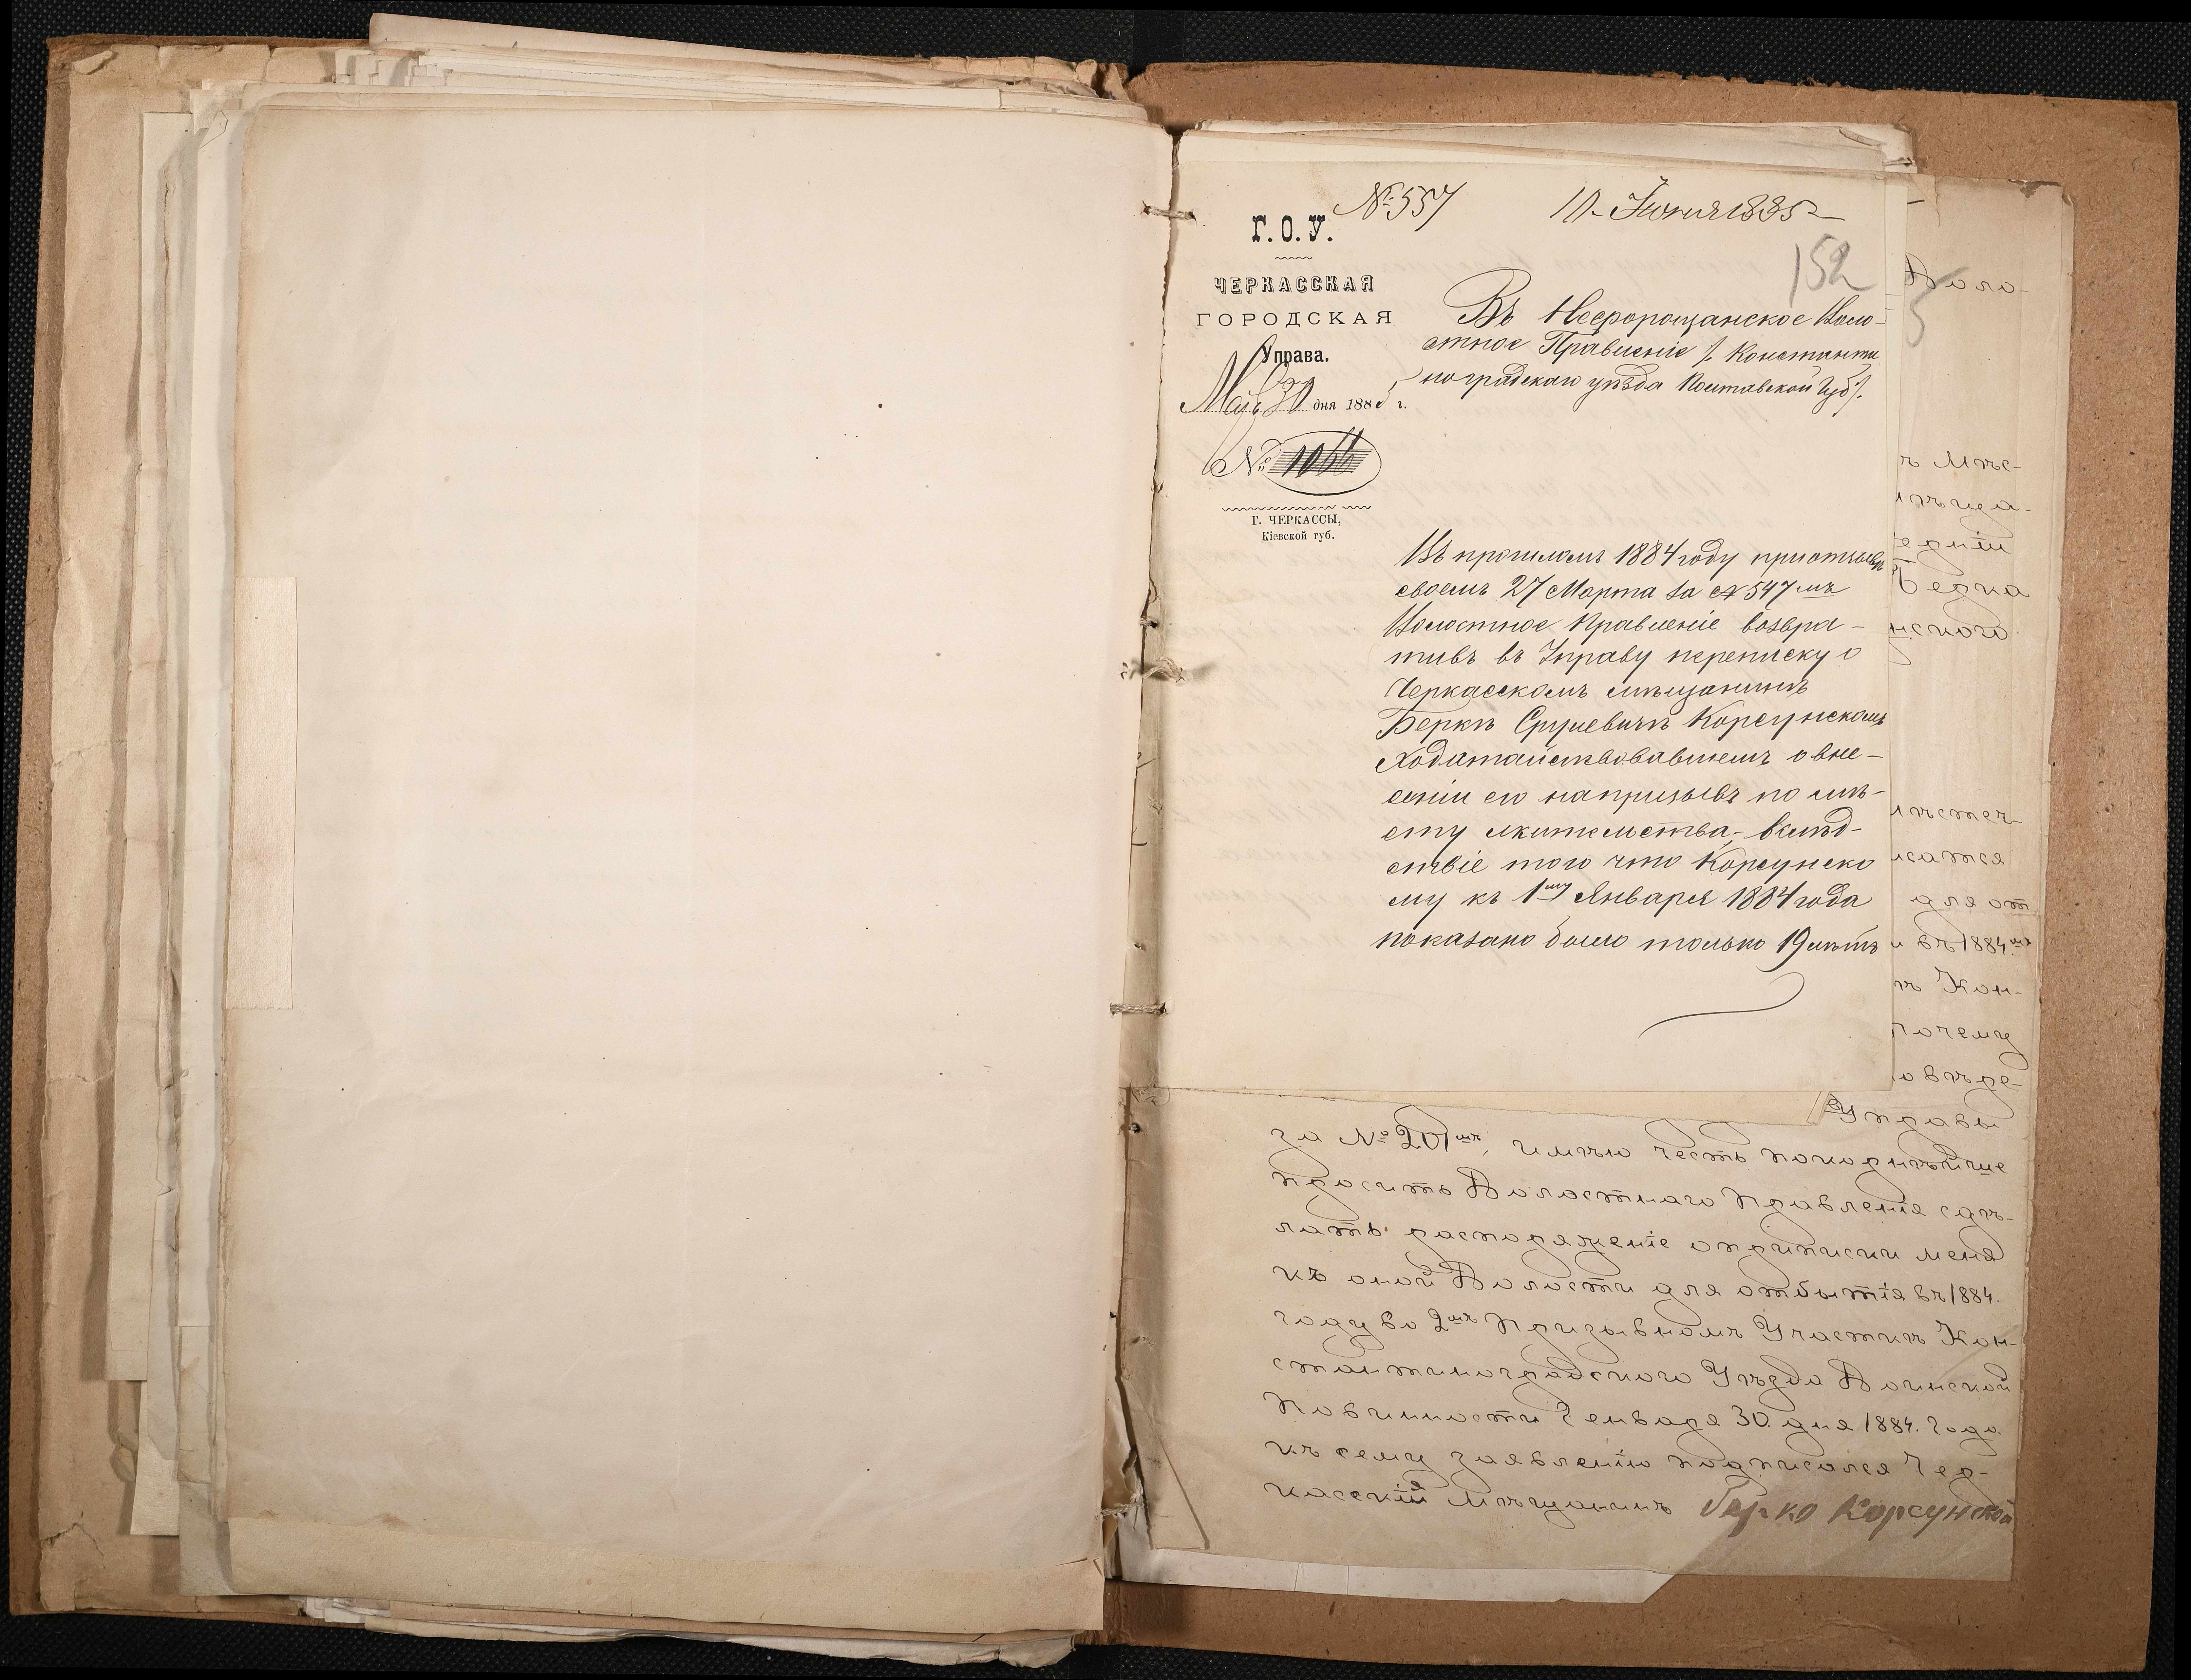 № 557
10 Июня 1885
152
Г. О. У.
ЧЕРКАССКАЯ
ГОРОДСКАЯ
Управа.
Мая 30 дня 1885 г.
№ 1066
Г. ЧЕРКАССЫ,
Кіевской губ.
Въ Нефорощанское Воло-
стное Правленіе /. Константи
ноградскаго уѣзда Полтавской Губ /.
Въ прошломъ 1884 году при отзывѣ
своемъ 27 Марта за № 547 мъ
Волостное Правленіе возвра-
тивъ въ Управу переписку о
Черкасскомъ мѣщанинѣ
Беркѣ Срулевичѣ Корсунскомъ
ходатайствовавшемъ о вне-
сеніи его на призывъ по мѣ-
сту жительства, – вслѣд-
ствіе того что Корсунско
му къ 1му Января 1884 года
показано было только 19 лѣтъ
Воло-
ъ Мѣс-
едніи
Берка
нскаго
исатся
для от
въ 1884мъ
ѣ Кон-
почему
Управы
за № 201мъ, имѣю честь покорнѣйше
просить Волостнаго Правленія сдѣ-
лать распоряженіе оприписки меня
къ оной Волости для отбытія въ 1884.
году во 2мъ Призывномъ Участкѣ Кон-
стантиноградскаго Уѣзда Воинской
Повинности Генваря 30. дня 1884. Года.
къ сему заявленію подписался Чер-
касскій Мѣщанинъ Берко Корсунской